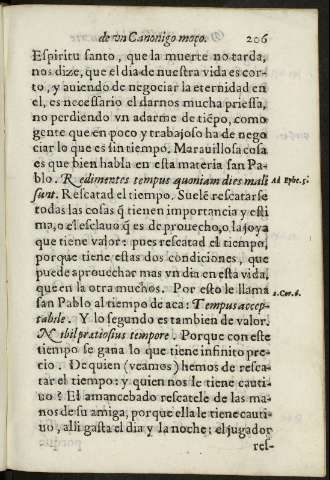 de vn Canonigo moço. 206
Espiritu santo, que la muerte no tarda,
nos dize, que el dia de nuestra vida es cor-
to, y auiendo de negociar la eternidad en
el, es necessario el darnos mucha priessa,
no perdiendo vn adarme de tiẽpo, como
gente que en poco y trabajoso ha de nego
ciar lo que es sin tiempo. Marauillosa cosa
es que bien habla en esta materia san Pa-
blo. Redimentes tempus quoniam dies mali Ad Ephe. 5.
sunt. Rescatad el tiempo. Suelẽ rescatarse
todas las cosas q̃ tienen importancia y esti
ma, o el esclauo q̃ es de prouecho, o la joya
que tiene valor: pues rescatad el tiempo,
porque tiene estas dos condiciones, que
puede aprouechar mas vn dia en esta vida,
que en la otra muchos. Por esto le llama 2. Cor. 6.
san Pablo al tiempo de aca: Tempus accep-
tabile. Y lo segundo es tambien de valor.
Nihil pratiosius tempore. Porque con este
tiempo se gana lo que tiene infinito pre-
cio. De quien (veamos) hemos de resca-
tar el tiempo: y quien nos le tiene cauti-
uo? El amancebado rescatele de las ma-
nos de su amiga, porque ella le tiene cauti-
uo, alli gasta el dia y la noche: el jugador
res-